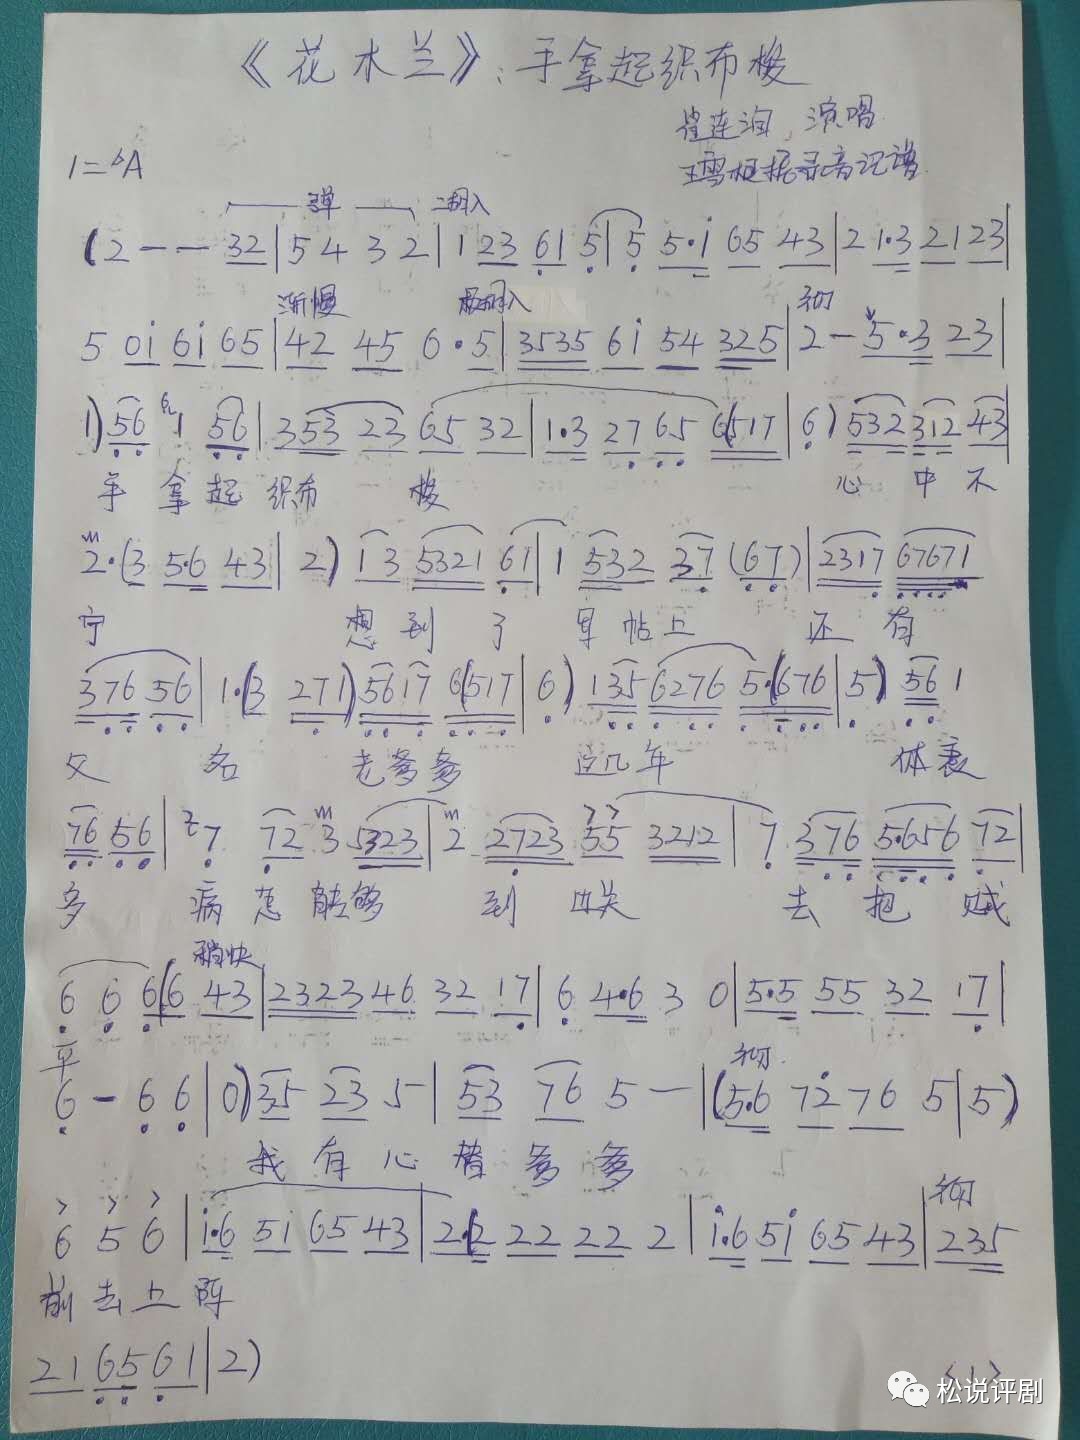 《花木兰》：手拿起织布梭
崔连润 演唱
王雪梃据录音记谱
1=♭A
弹 二胡入
(2 — — 32|5 4 3 2|1 23 61 5|5 5·i 65 43|2 1·3 21 23|
渐慢 入 初
5 0i 6i 65|42 45 6·5|3535 6i 54 325|2 — 5·3 23|
1)56 1 56|353 23 65 32|1·3 27 65 6(517|6)532 312 43|
手 拿 起 织布 梭 心 中 不
2·(3 5·6 43|2) 13 5321 61|1 532 37 (67)|2317 67671
宁 想 到 了 军 帖上 还 有
376 56|1·(3 271)5617 6(517|6) 135 6276 5·(676|5) 56 1
父 名 老爹爹 这几年 体衰
76 56|7 72 3 5323|2 2723 55 3212|7 376 5·656 72|
多 病怎能够 到 边关 去 把 贼
稍快
6 6 6(6 43|2323 46 32 17|6 4·6 3 0|5·5 55 32 17|
平
初
6 — 6 6|0)35 23 5|53 76 5 —|(5·6 72 76 5|5)
我 有 心 替 爹 爹
初
6 5 6|i·6 5i 65 43|2·(2 22 22 2|i·6 5i 65 43|235
前 去 上 阵
21 65 61|2)
<1>
松说评剧